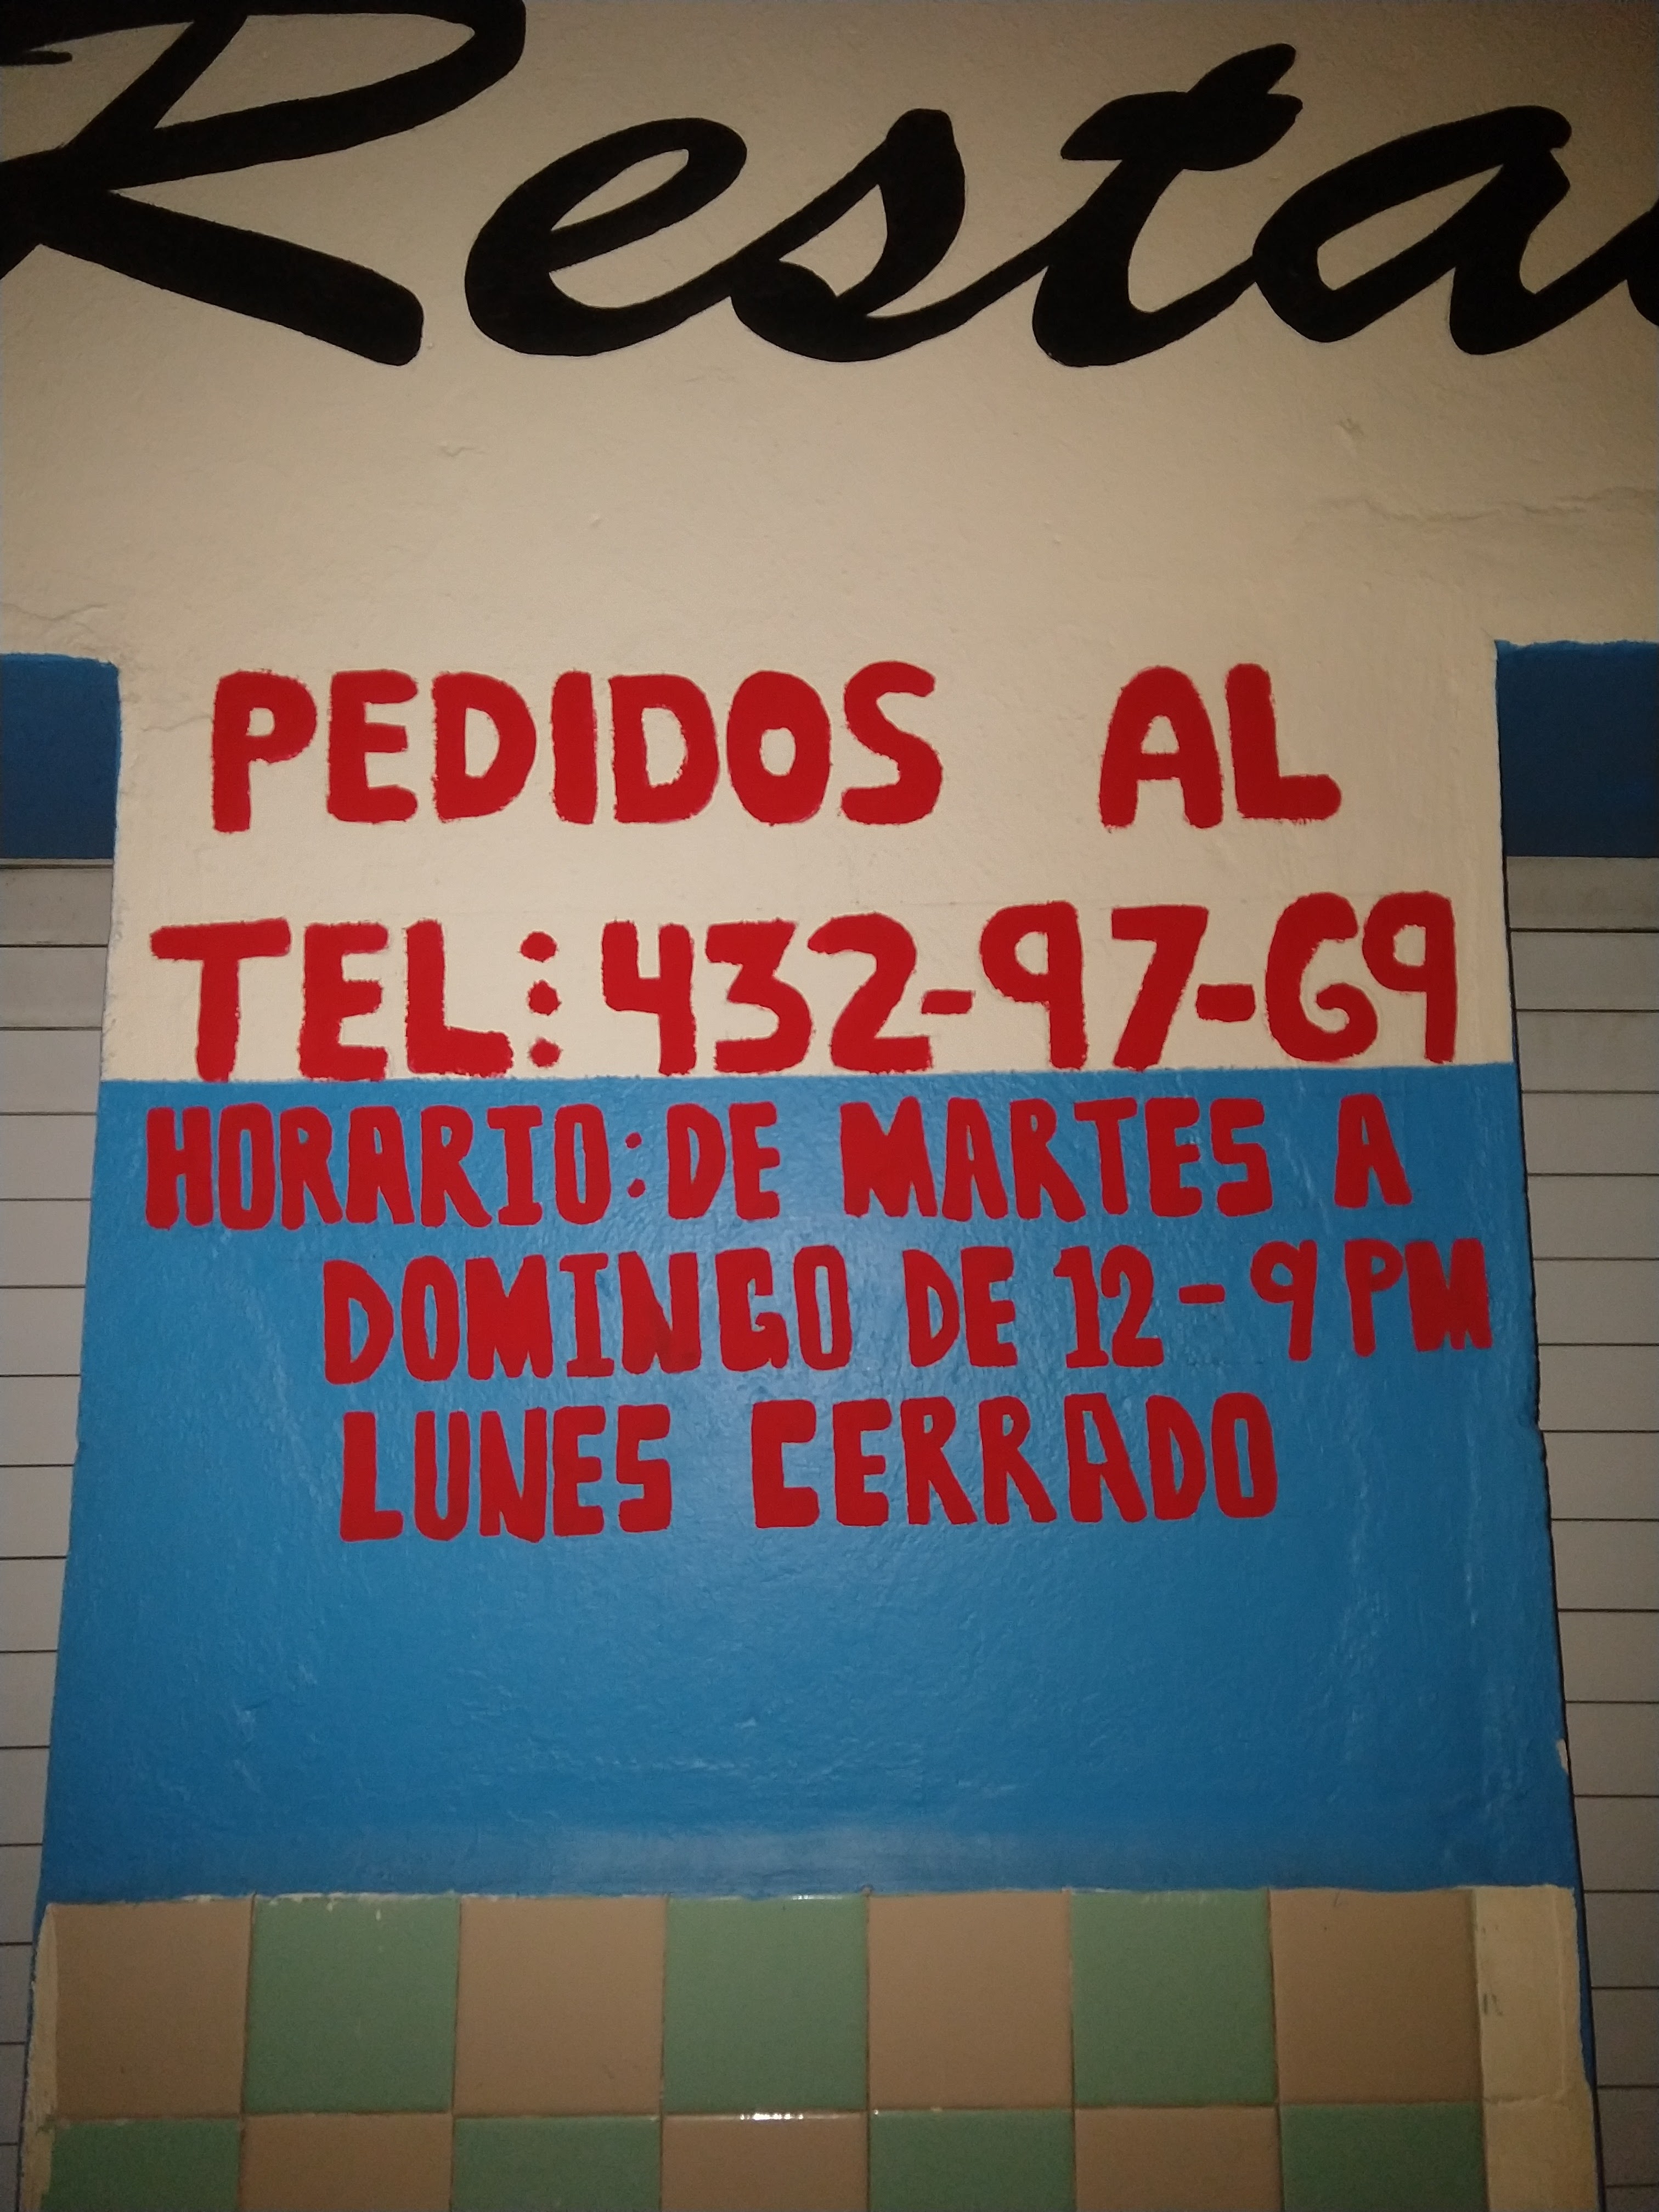 Resta
PEDIDOS AL
TEL: 432-97-69
HORARIO: DE MARTES A
DOMINGO DE 12-9 PM
LUNES CERRADO